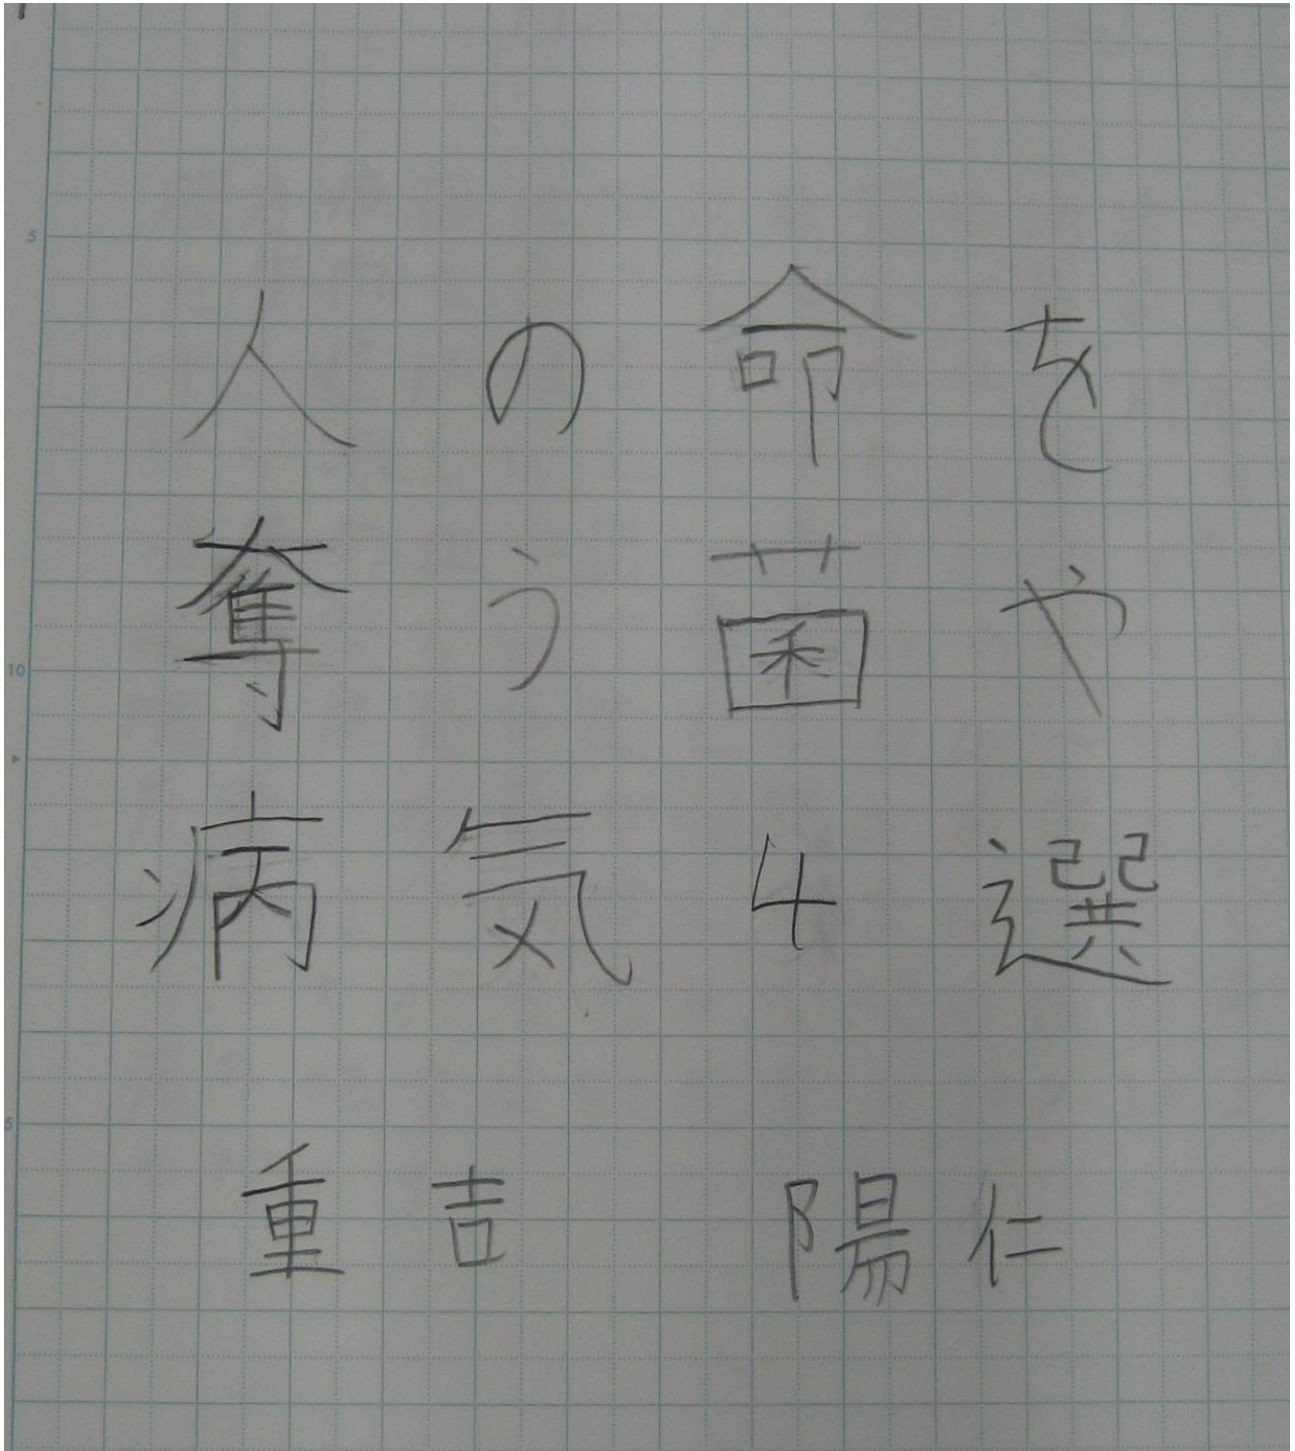 人の命を
奪う菌や
病気4選
重吉 陽仁
5
10
5